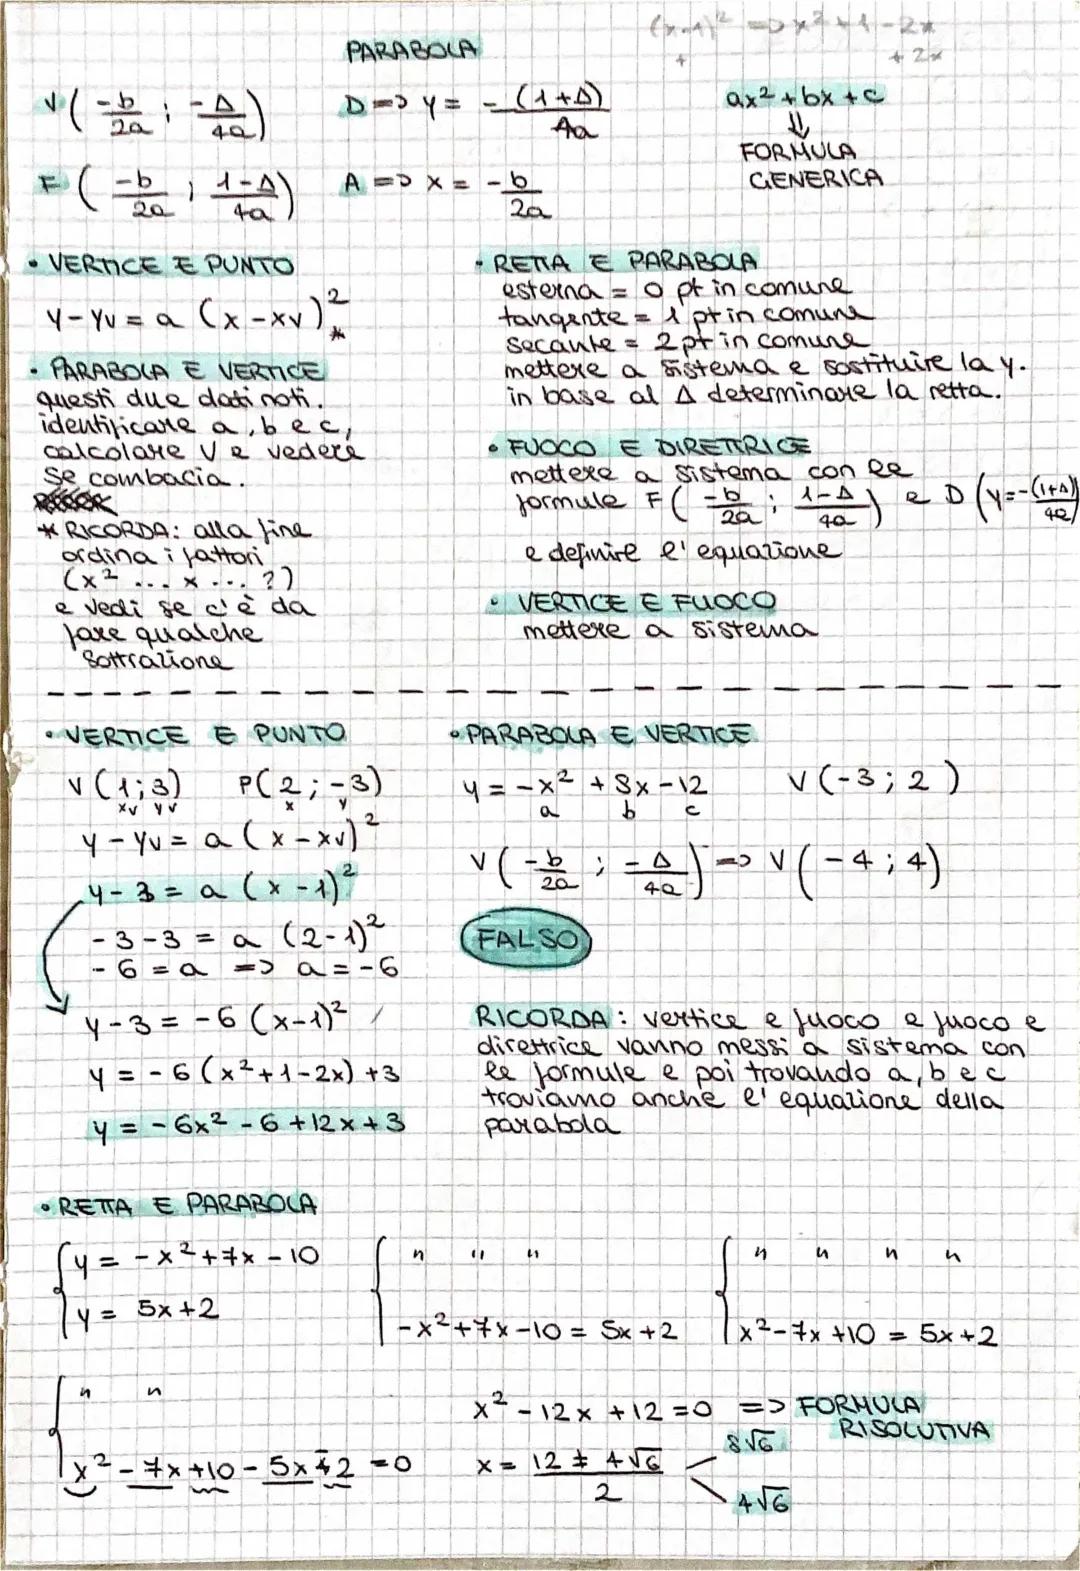 (x-1)² => x²+1-2x
+ +2x
PARABOLA
V (-b/2a ; -Δ/4a) D => y = -(1+Δ)/4a ax²+bx+c
⇓
F (-b/2a ; 1-Δ/4a) A => x = -b/2a FORMULA
GENERICA
• VERTICE E PUNTO
y-yv = a (x-xv)² *
• PARABOLA E VERTICE
questi due dati noti.
identificare a, b e c,
calcolare V e vedere
se combacia.
* RICORDA: alla fine
ordina i fattori
(x² ... x ... ?)
e vedi se c'è da
fare qualche
sottrazione
• RETTA E PARABOLA
esterna = 0 pt in comune
tangente = 1 pt in comune
secante = 2 pt in comune
mettere a sistema e sostituire la y.
in base al Δ determinare la retta.
• FUOCO E DIRETTRICE
mettere a sistema con le
formule F (-b/2a ; 1-Δ/4a) e D (y=-(1+Δ)/4a)
e definire l'equazione
• VERTICE E FUOCO
mettere a sistema
• VERTICE E PUNTO
V (1;3) P(2;-3)
xv yv x y
y-yv = a (x-xv)²
y-3 = a (x-1)²
-3-3 = a (2-1)²
-6 = a => a = -6
y-3 = -6 (x-1)²
y = -6 (x²+1-2x) +3
y = -6x² -6 +12x +3
• PARABOLA E VERTICE
y = -x² +8x -12 V (-3; 2)
a b c
V (-b/2a ; -Δ/4a) => V (-4; 4)
FALSO
RICORDA: vertice e fuoco e fuoco e
direttrice vanno messi a sistema con
le formule e poi trovando a, b e c
troviamo anche l'equazione della
parabola
• RETTA E PARABOLA
{ y = -x²+7x-10 { " " " { " " " "
{ y = 5x+2 { -x²+7x-10 = 5x+2 { x²-7x+10 = 5x+2
{ " " x²-12x+12=0 => FORMULA
RISOLUTIVA
{ x²-7x+10-5x+2=0 x = 12 ± 4√6 / 2 8√6
4√6